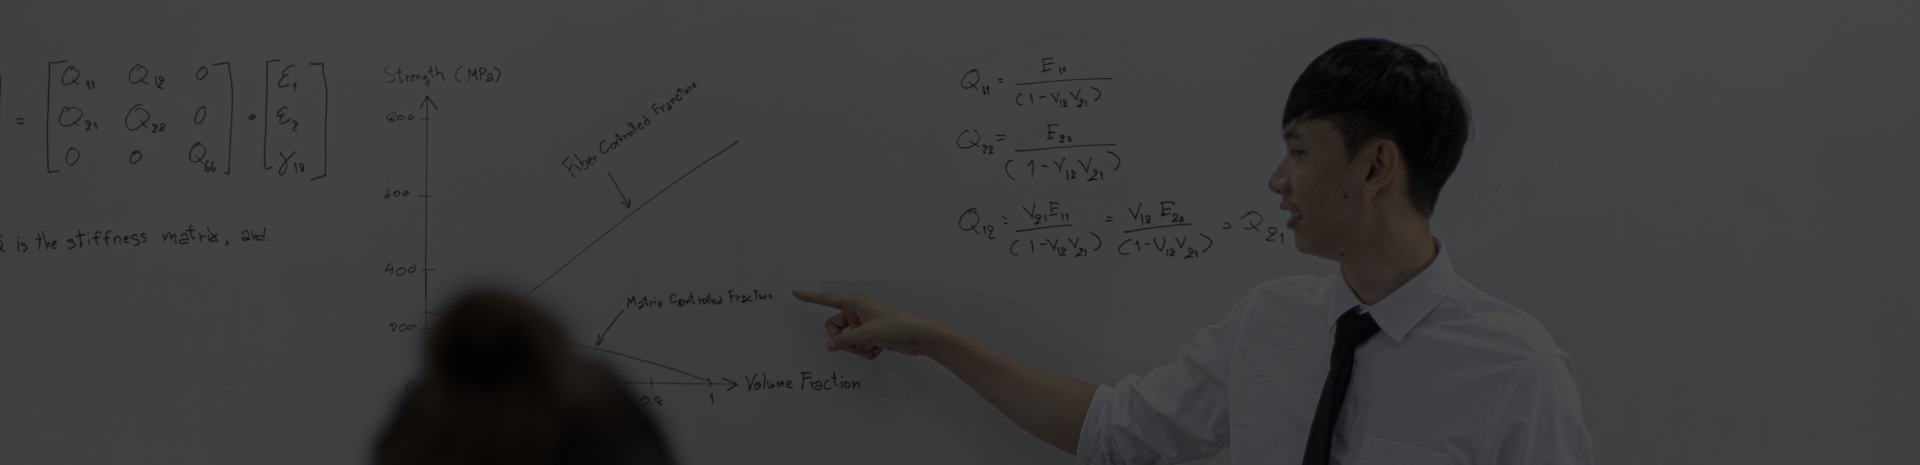 = [ Q11 Q12 0 ] [ ε1 ]
Q21 Q22 0 • ε2
0 0 Q66 γ12
is the stiffness matrix, and
Strength (MPa)
800
600
400
200
0
Fiber Controlled Fracture
Matrix Controlled Fracture
0.8 1
Volume Fraction
Q11 = E11 / (1-V12V21)
Q22 = E22 / (1-V12V21)
Q12 = V21E11 / (1-V12V21) = V12E22 / (1-V12V21) = Q21